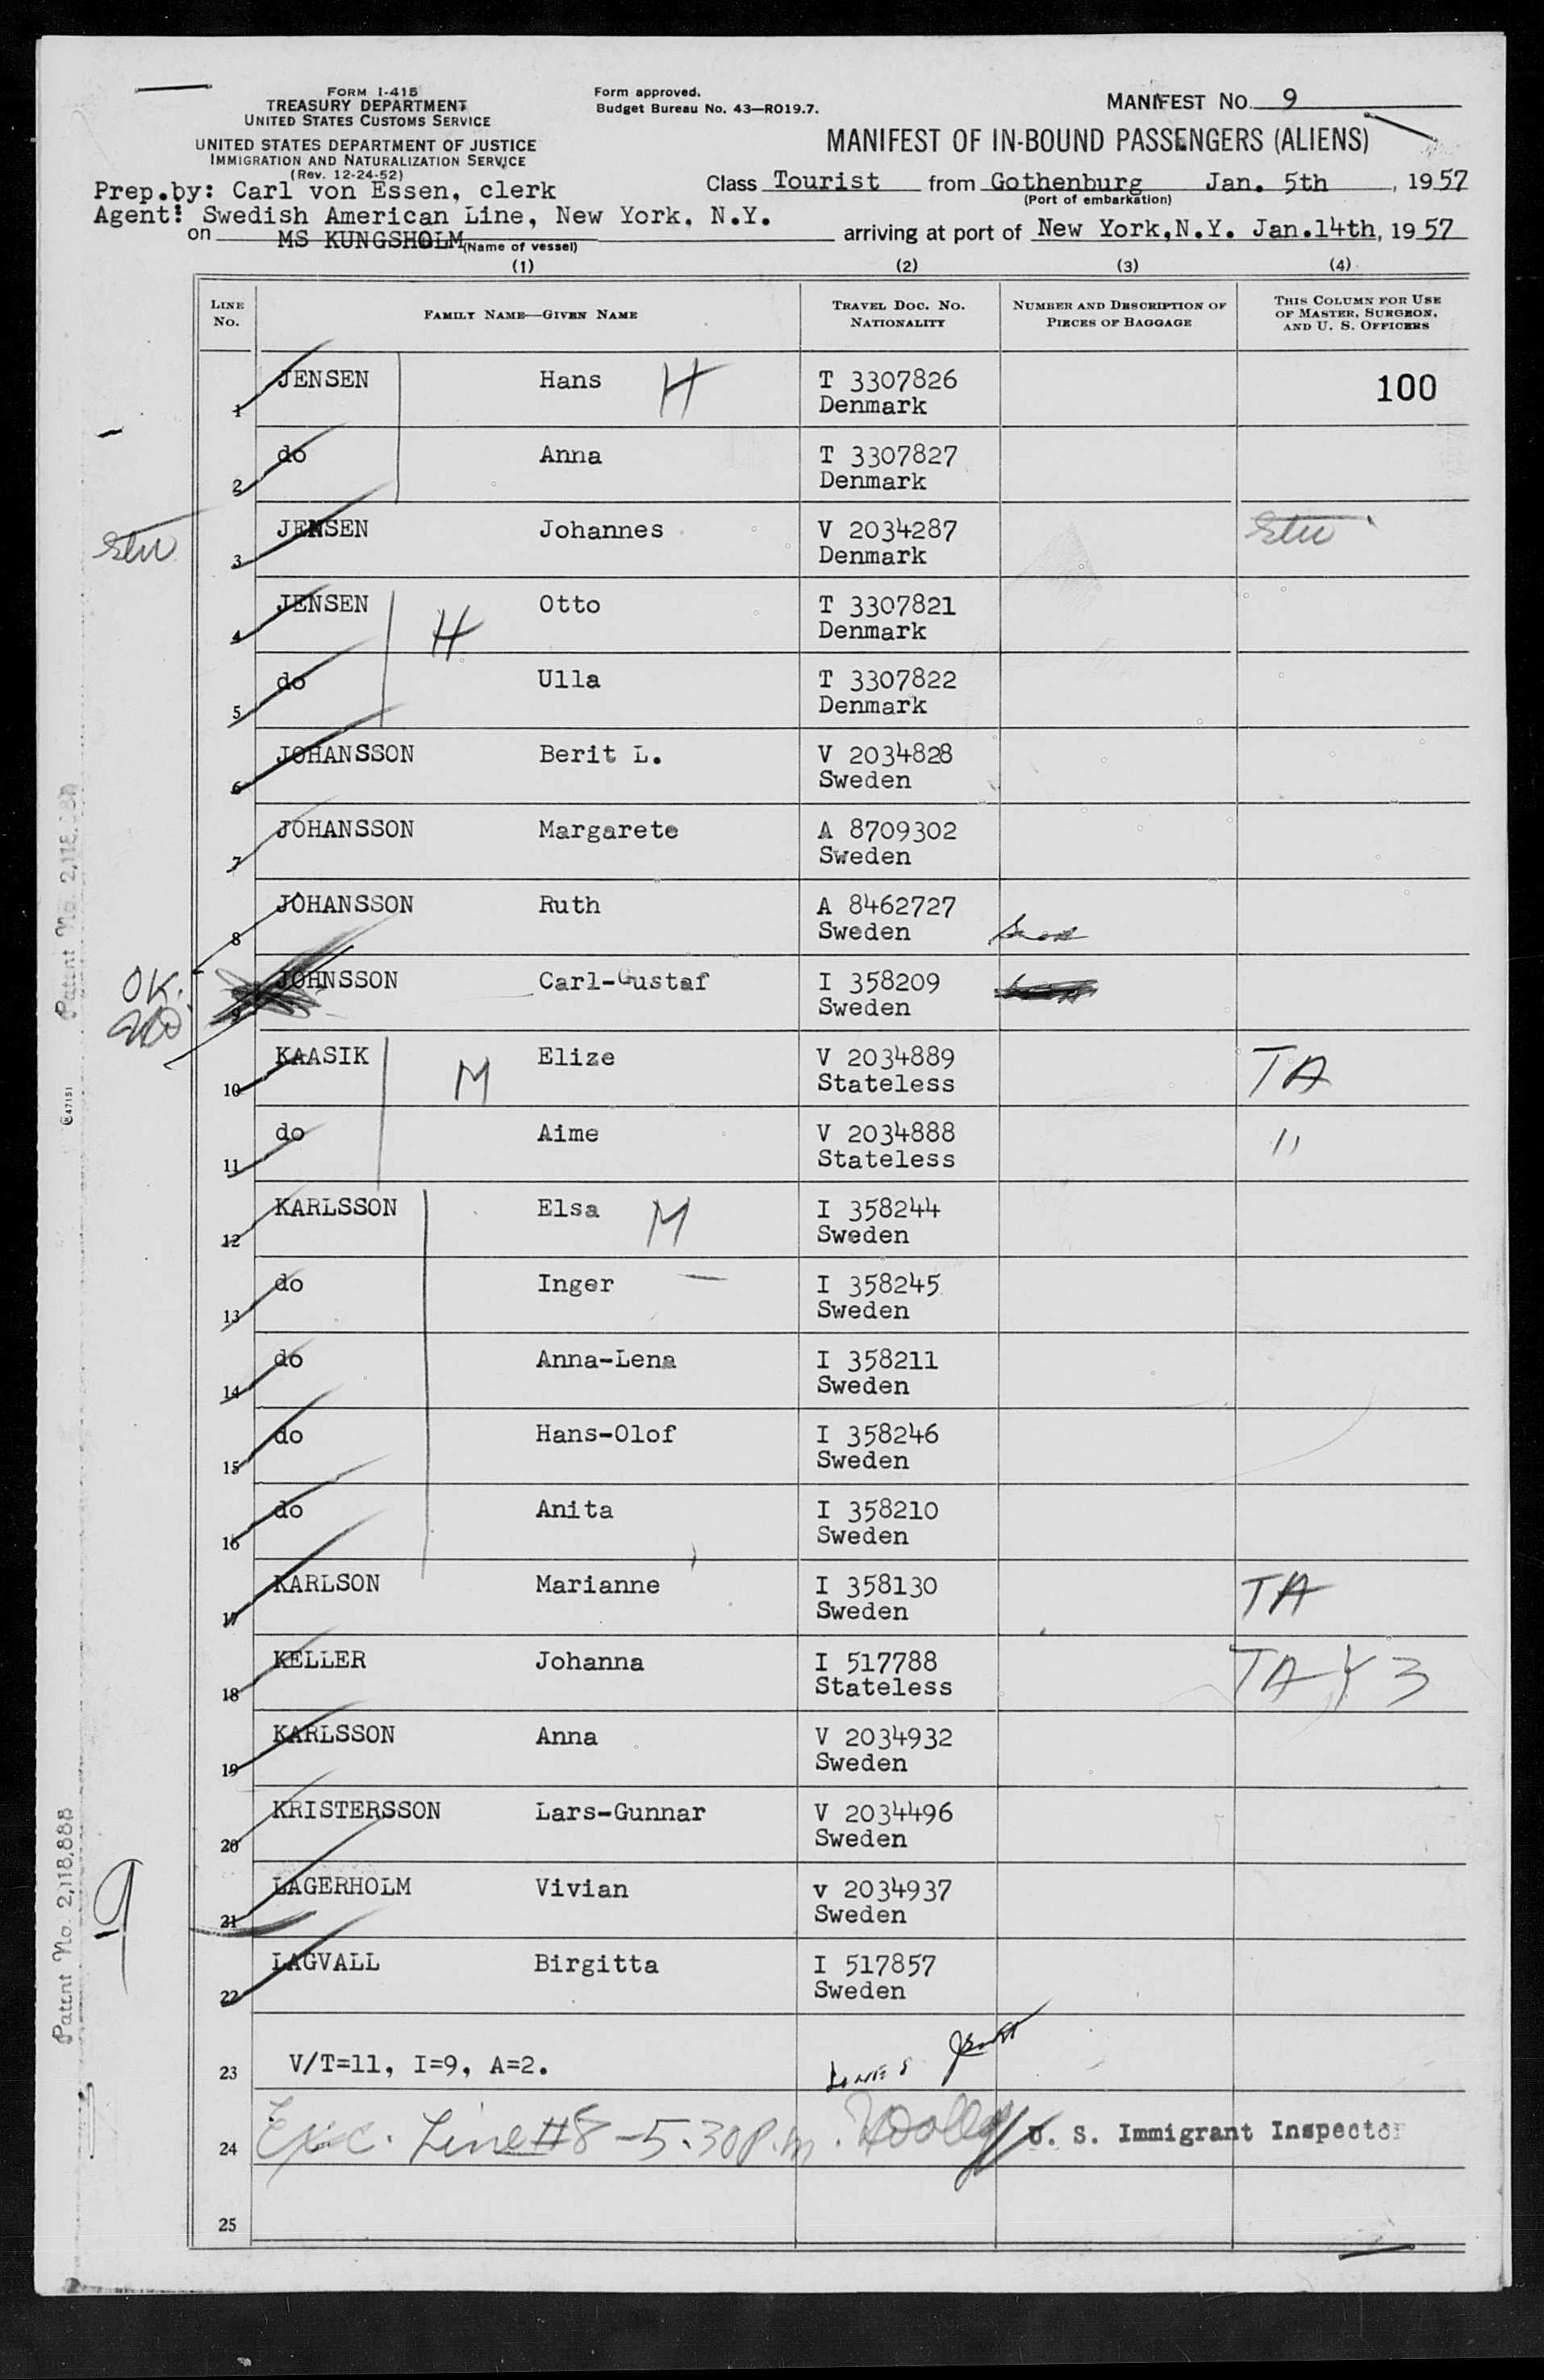 FORM I-415
TREASURY DEPARTMENT
UNITED STATES CUSTOMS SERVICE
UNITED STATES DEPARTMENT OF JUSTICE
IMMIGRATION AND NATURALIZATION SERVICE
(Rev. 12-24-52)
Form approved.
Budget Bureau No. 43—RO19.7.
MANIFEST NO. 9
MANIFEST OF IN-BOUND PASSENGERS (ALIENS)
Prep.by: Carl von Essen, clerk
Class Tourist from Gothenburg Jan. 5th, 1957
(Port of embarkation)
Agent: Swedish American Line, New York, N.Y.
on MS KUNGSHOLM (Name of vessel) arriving at port of New York,N.Y. Jan.14th, 1957
(1) (2) (3) (4)
LINE NO. FAMILY NAME—GIVEN NAME TRAVEL DOC. NO. NATIONALITY NUMBER AND DESCRIPTION OF PIECES OF BAGGAGE THIS COLUMN FOR USE OF MASTER, SURGEON, AND U. S. OFFICERS
1 JENSEN Hans H T 3307826 100
Denmark
2 do Anna T 3307827
Denmark
3 JENSEN Johannes V 2034287
Denmark
4 JENSEN H Otto T 3307821
Denmark
5 do Ulla T 3307822
Denmark
6 JOHANSSON Berit L. V 2034828
Sweden
7 JOHANSSON Margarete A 8709302
Sweden
8 JOHANSSON Ruth A 8462727
Sweden
OK.
9 JOHNSSON Carl-Gustaf I 358209
Sweden
10 KAASIK M Elize V 2034889 TA
Stateless
11 do Aime V 2034888 "
Stateless
12 KARLSSON Elsa M I 358244
Sweden
13 do Inger I 358245
Sweden
14 do Anna-Lena I 358211
Sweden
15 do Hans-Olof I 358246
Sweden
16 do Anita I 358210
Sweden
17 KARLSON Marianne I 358130 TA
Sweden
18 KELLER Johanna I 517788 TA Y 3
Stateless
19 KARLSSON Anna V 2034932
Sweden
20 KRISTERSSON Lars-Gunnar V 2034496
Sweden
21 LAGERHOLM Vivian v 2034937
Sweden
22 LAGVALL Birgitta I 517857
Sweden
23 V/T=11, I=9, A=2.
24 Exc. Line #8 - 5.30 P.m. U. S. Immigrant Inspector
25
9
Patent No. 2,118,888
C47151
Patent No. 2,118,888